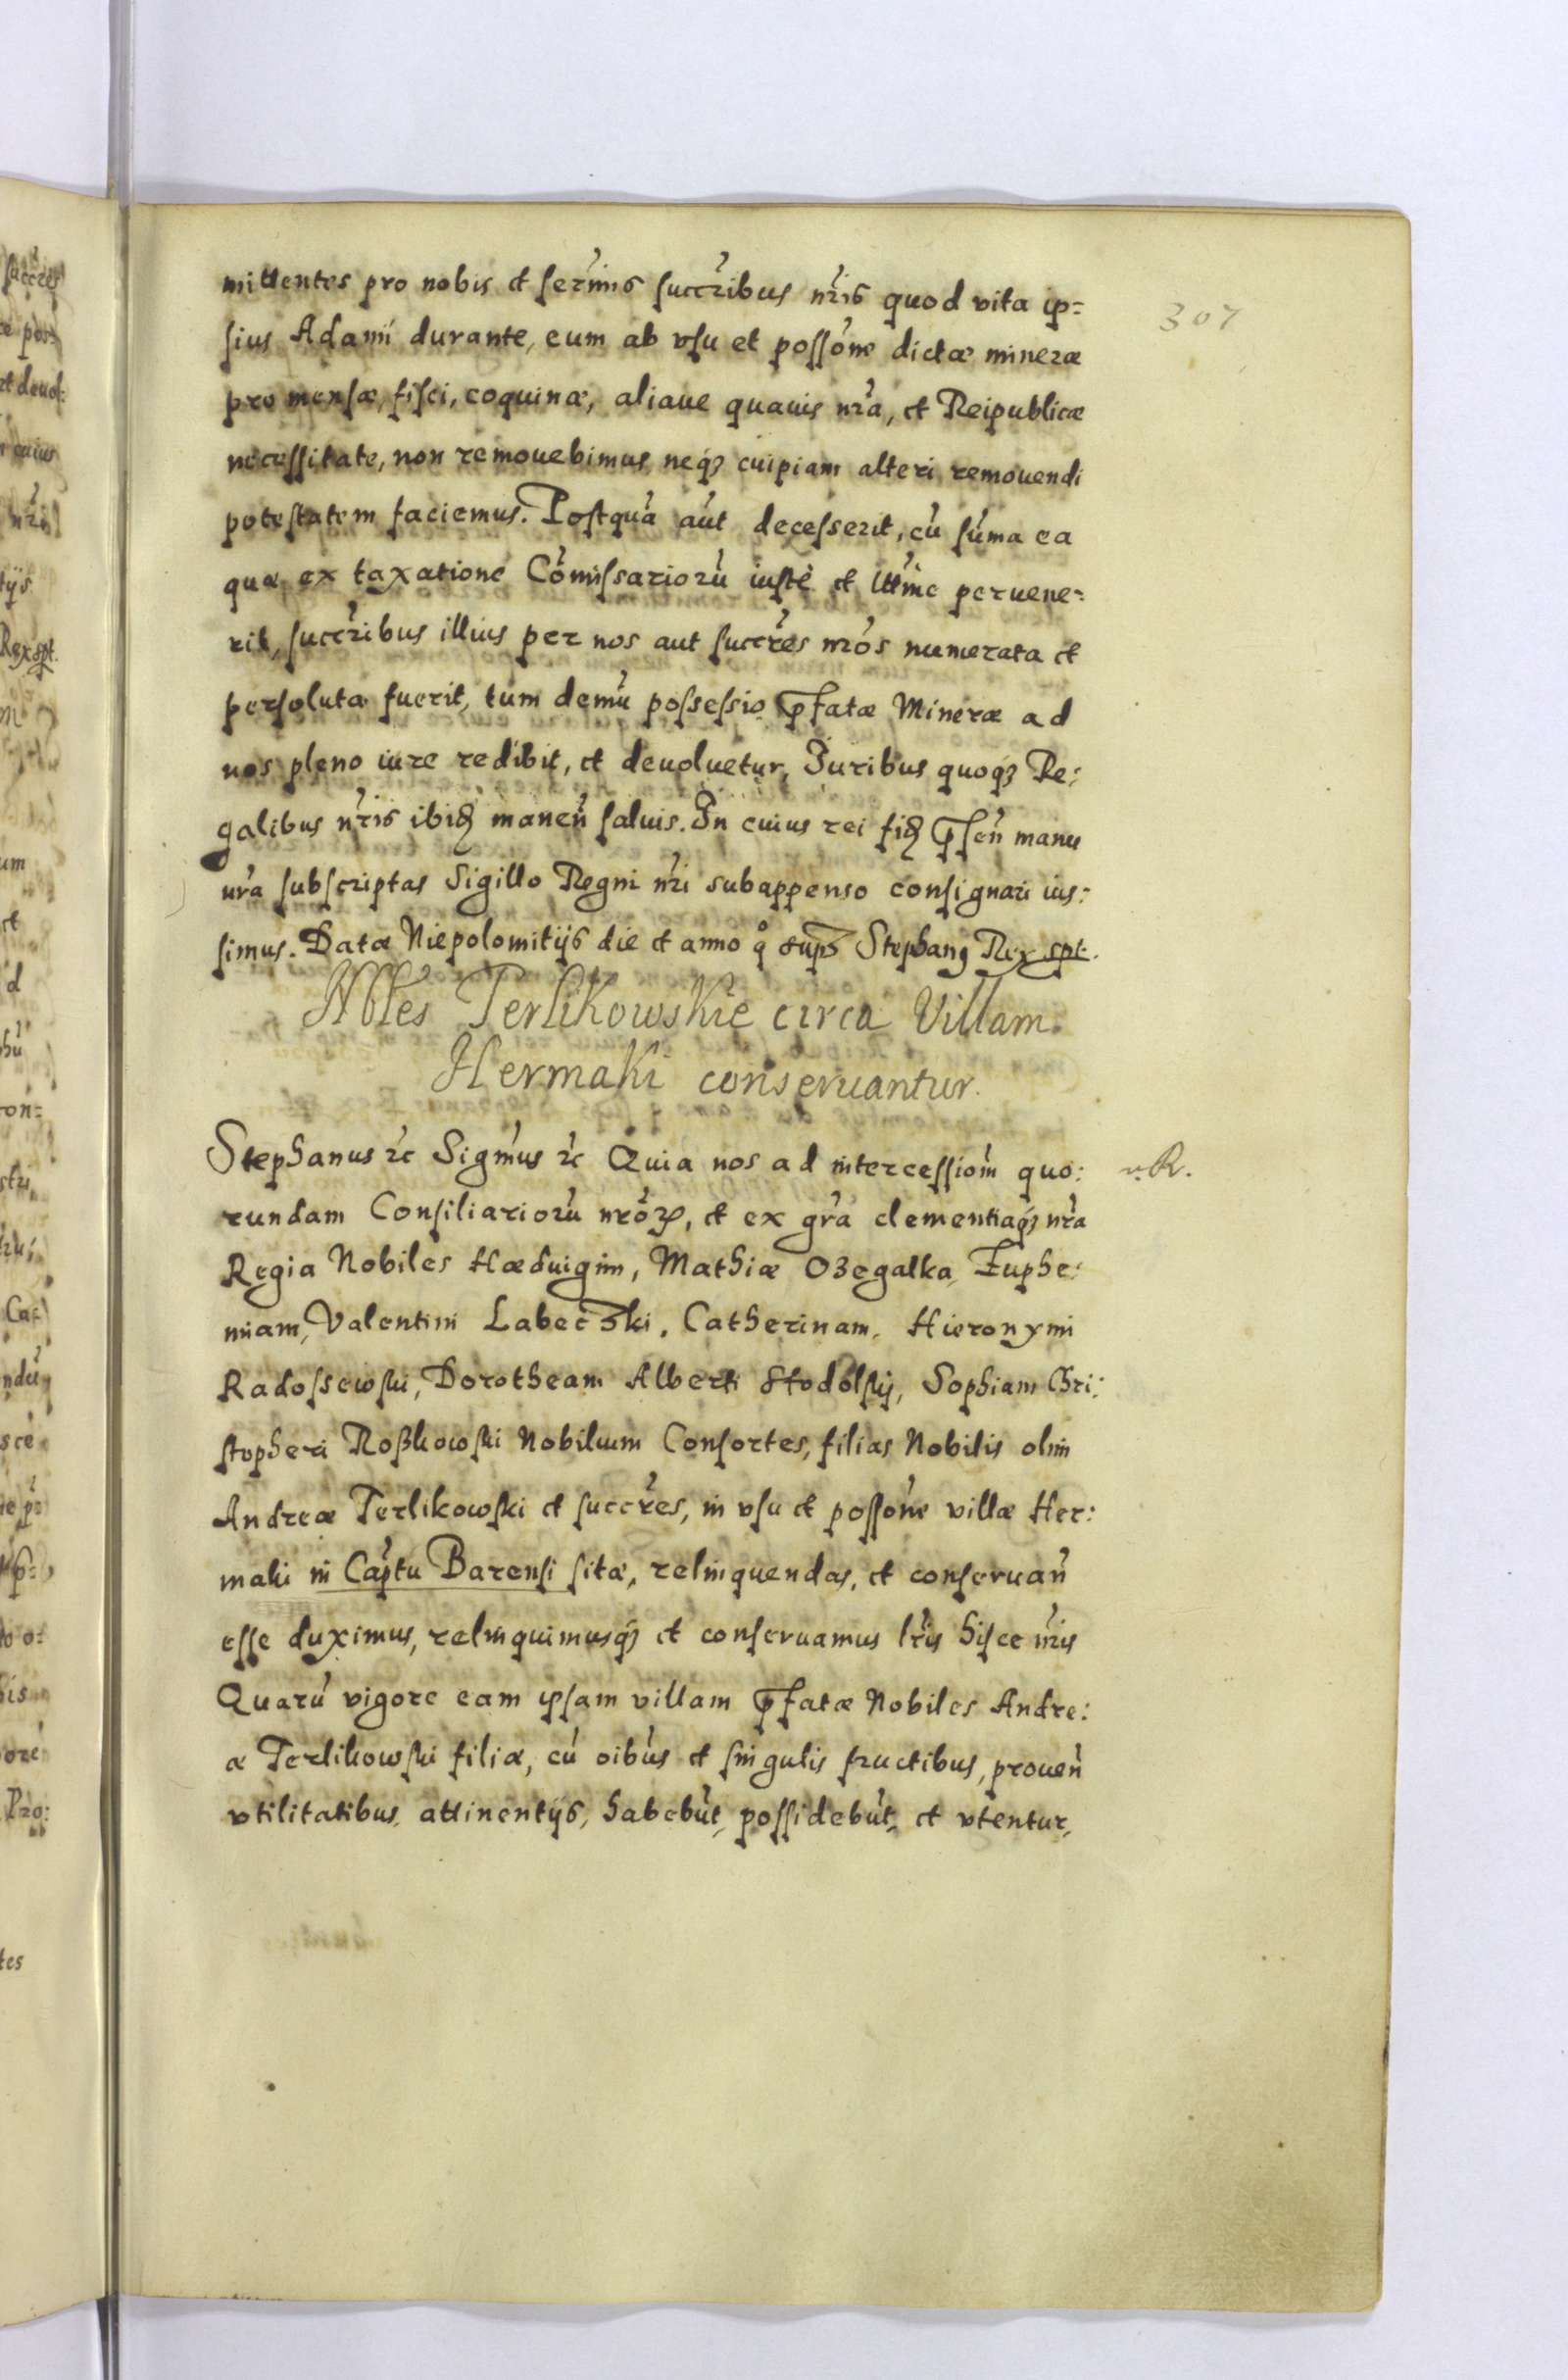 307
mittentes pro nobis et serm̃is succr̃ibus nr̃is quod vita ip=
sius Adami durante, eum ab vsu et possõne dictæ mineræ
pro mensæ, fisci, coquinæ, aliaue quauis nr̃a, et Reipublicæ
necessitate, non remouebimus neqȝ cuipiam alteri remouendi
potestatem faciemus. Postquã aũt decesserit, cũ sũma ea
quæ ex taxatione Cõmissariorũ iustè et lttĩme peruene=
rit, succr̃ibus illius per nos aut succr̃es nr̃os numerata et
persoluta fuerit, tum demũ possessio p̃fatæ Mineræ ad
nos pleno iure redibit, et deuoluetur, Juribus quoqȝ Re:
galibus nr̃is ibiđ maneñ saluis. In cuius rei fiđ p̃señ manu
nr̃a subscriptas Sigillo Regni nr̃i subappenso consignari ius:
simus. Datæ Niepolomitijs die et anno q̊ supȝ Stephanꝰ Rex spt.
Nbles Terlikowskie circa Villam
Hermaki conseruantur.
Stephanus ꝛc Sigm̃us ꝛc Quia nos ad intercessiom̃ quo:
rundam Consiliariorũ nr̃oꝝ, et ex gr̃a clementiaqȝ nr̃a
Regia Nobiles Hæduigim, Mathiæ Ozegalka, Euphe:
miam, Valentini Labeczki, Catherinam, Hieronymi
Radossewski, Dorotheam Alberti Stodolskij, Sophiam Chri:
stopheri Roßkowski Nobilium Consortes, filias Nobilis olim
Andreæ Terlikowski et succr̃es, in vsu et possõne villæ Her:
maki in Cap̃tu Barensi sitæ, relinquendas, et conseruañ
esse duximus, relinquimusqȝ et conseruamus lr̃is hisce nr̃is
Quarũ vigore eam ipsam villam p̃fatæ Nobiles Andre:
æ Terlikowski filiæ, cũ oibũs et singulis fructibus, proueñ
vtilitatibus, attinentijs, habebũt, possidebũt, et vtentur,
n. R.